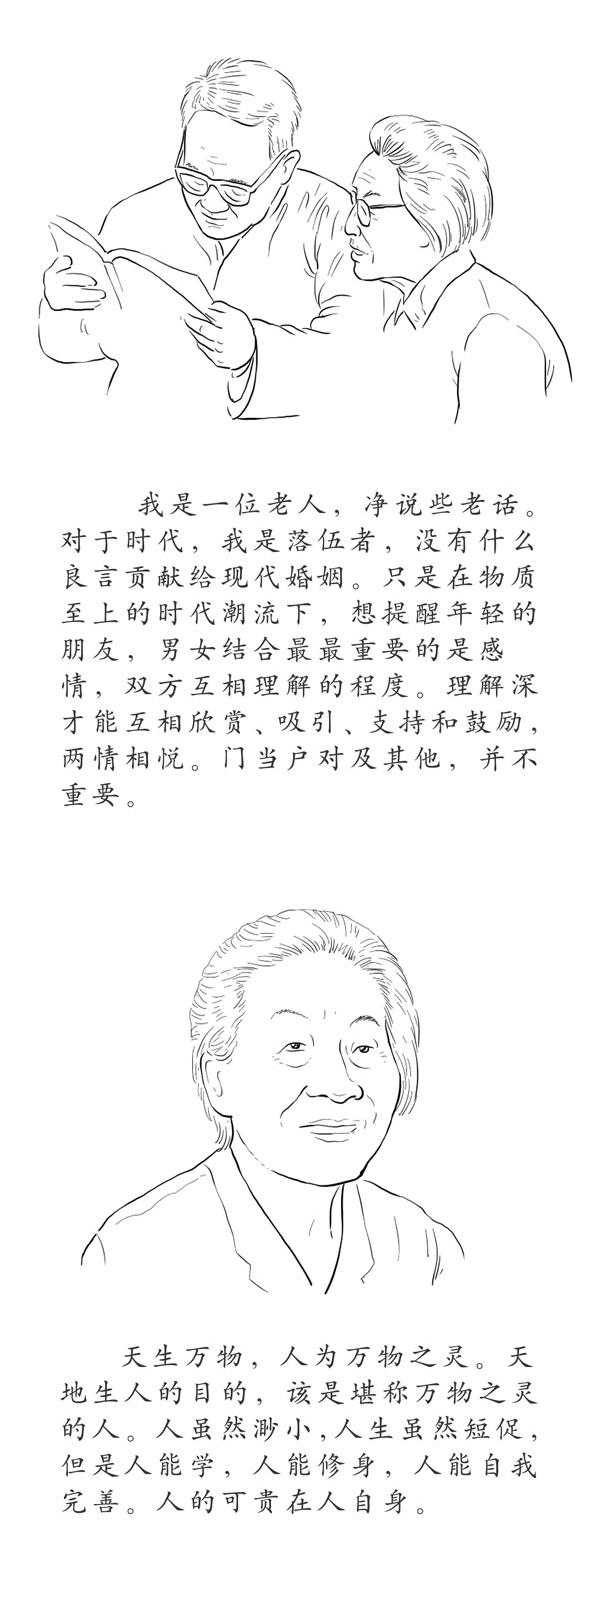 我是一位老人，净说些老话。
对于时代，我是落伍者，没有什么
良言贡献给现代婚姻。只是在物质
至上的时代潮流下，想提醒年轻的
朋友，男女结合最最重要的是感
情，双方互相理解的程度。理解深
才能互相欣赏、吸引、支持和鼓励，
两情相悦。门当户对及其他，并不
重要。
天生万物，人为万物之灵。天
地生人的目的，该是堪称万物之灵
的人。人虽然渺小，人生虽然短促，
但是人能学，人能修身，人能自我
完善。人的可贵在人自身。